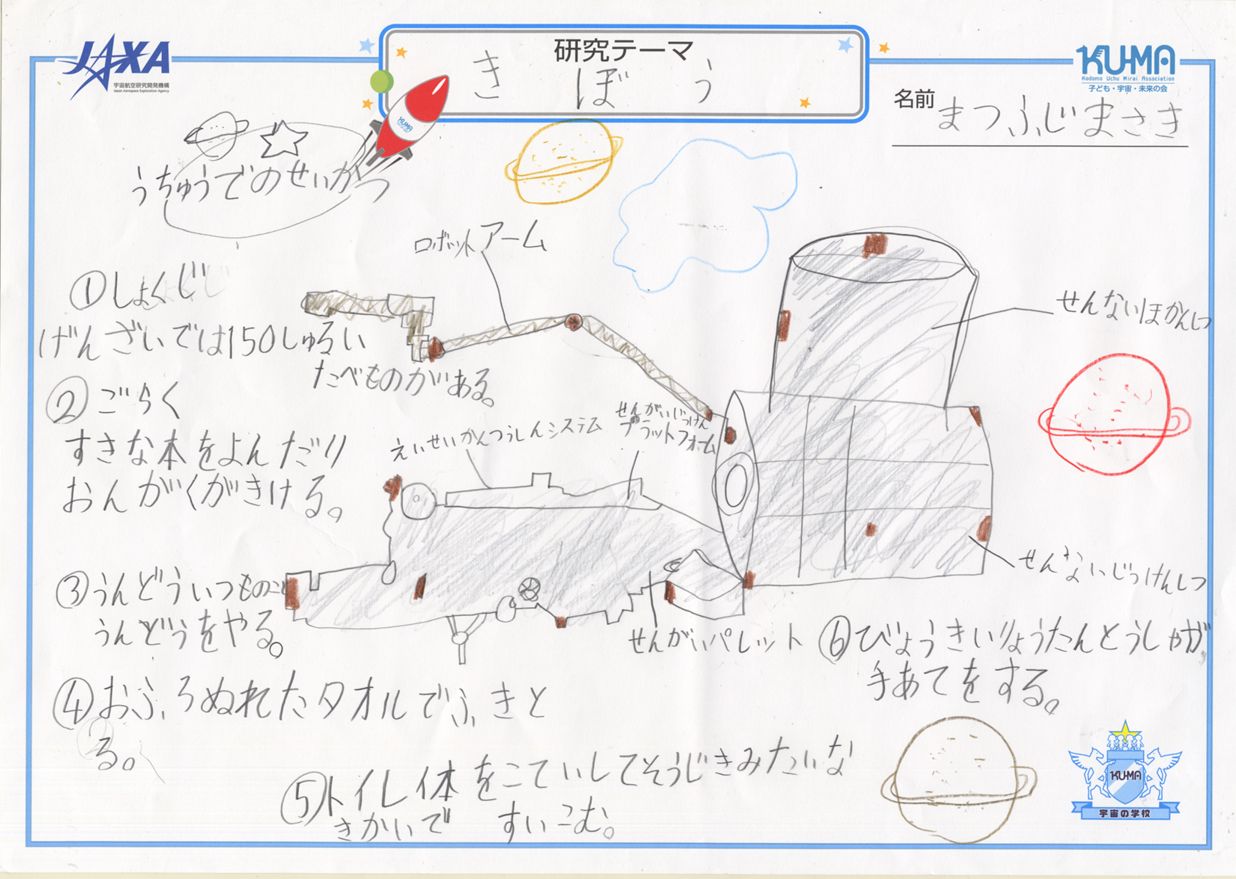 JAXA
宇宙航空研究開発機構
Japan Aerospace Exploration Agency
研究テーマ
きぼう
KUMA
KU-MA
Kodomo Uchu Mirai Association
子ども・宇宙・未来の会
名前
まつふじまさき
うちゅうでのせいかつ
ロボットアーム
①しょくじ
げんざいでは150しゅるい
たべものがある。
せんないほかんしつ
②ごらく
すきな本をよんだり
おんがくがきける。
えいせいかんつうしんシステム
せんがいじっけん
プラットフォーム
③うんどういつものこ
うんどうをやる。
せんないじっけんしつ
せんがいパレット
⑥びょうきいりょうたんとうしゃが
手あてをする。
④おふろぬれたタオルでふきと
る。
⑤トイレ体をこていしてそうじきみたいな
きかいですいこむ。
KU-MA
宇宙の学校